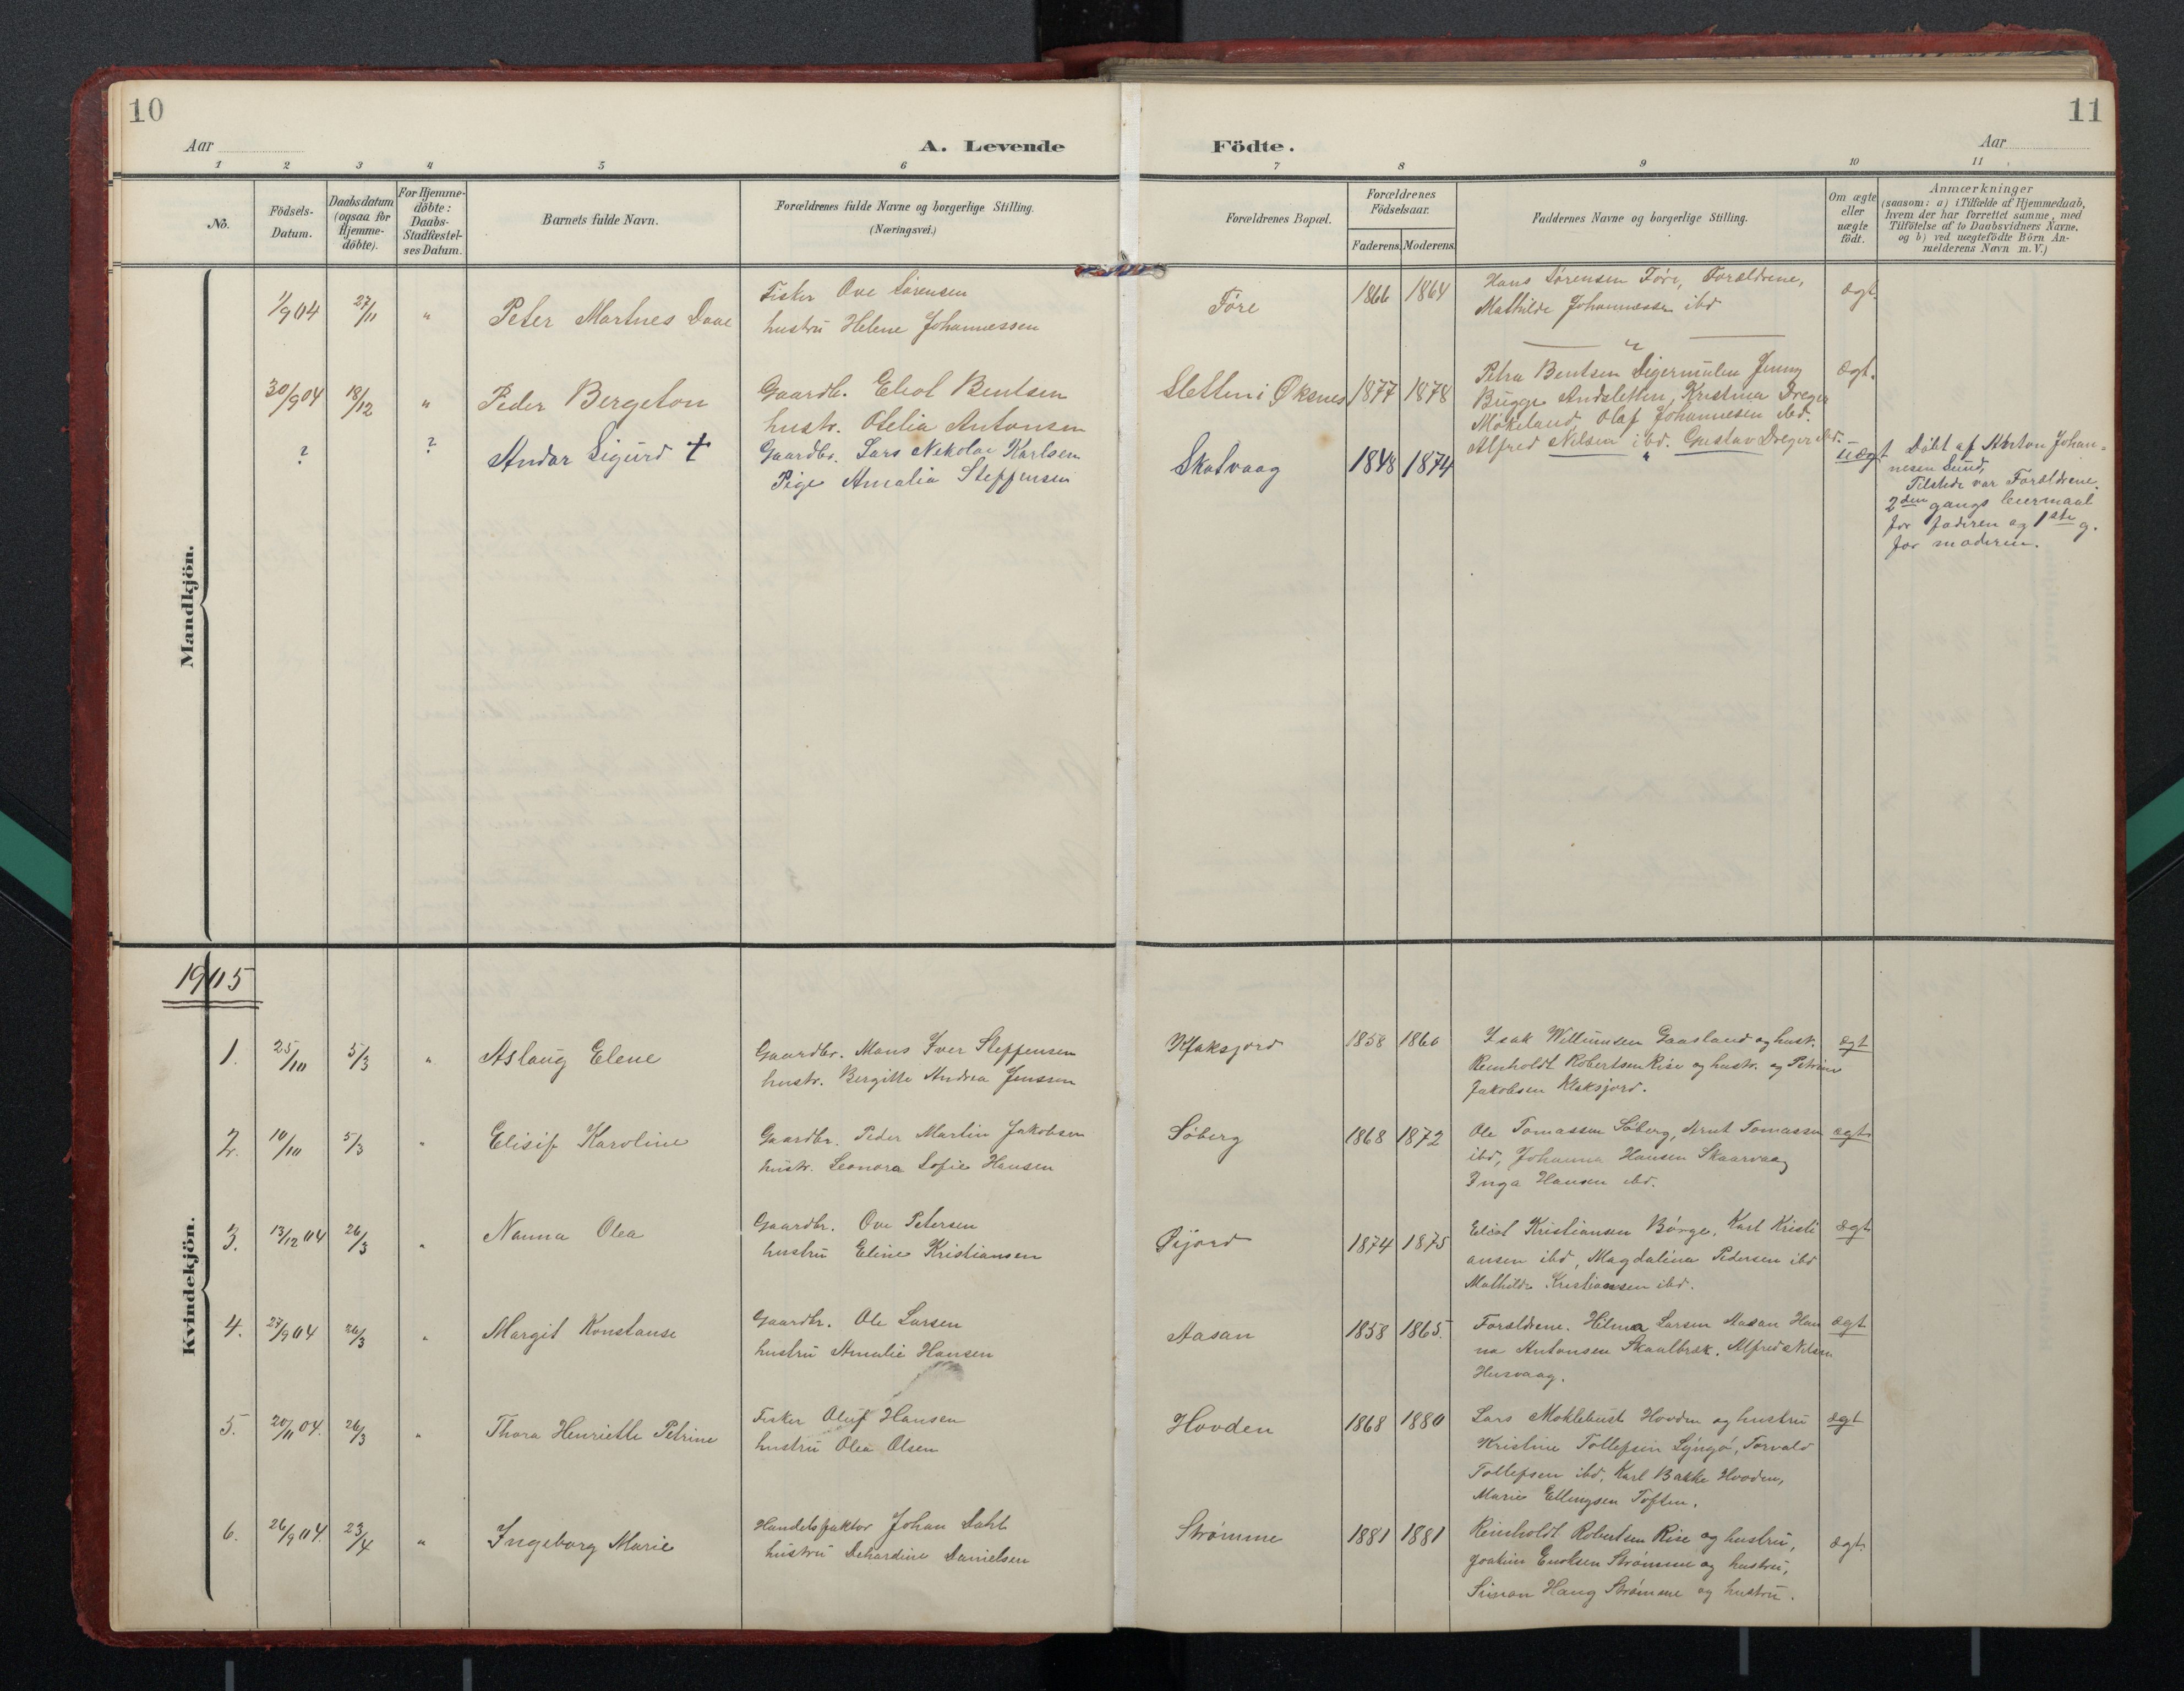 10
11
Aar
A. Levende Födte.
Aar
1 2 3 4 5 6 7 8 9 10 11
No.
Födsels-
Datum.
Daabsdatum
(ogsaa for
Hjemme-
döbte).
For Hjemme-
döbte:
Daabs-
Stadfæstel-
ses Datum.
Barnets fulde Navn.
Forældrenes fulde Navne og borgerlige Stilling.
(Næringsvei.)
Forældrenes Bopæl.
Forældrenes
Födselsaar.
Faderens. Moderens.
Faddernes Navne og borgerlige Stilling.
Om ægte
eller
uægte
födt.
Anmærkninger
(saasom: a) i Tilfælde af Hjemmedaab,
hvem der har forrettet samme, med
Tilföielse af to Daabsvidners Navne,
og b) ved uægtefödte Börn An-
melderens Navn m. V.)
Mandkjön.
1/9 04 27/11 " Peter Martnes Daae
Fisker Ove Sørensen
hustru Helene Johannessen
Føre 1866 1864
Hans Sørensen Føre, Forældrene,
Mathilde Johannessen ibd
ægt.
30/9 04 18/12 " Peder Bergeton
Gaardb. Eliot Bentsen
hustr. Otelia Antonsen
Sletten i Øksnes 1877 1878
Petra Bentsen Digermulen Jenny
Bugge Andsletten, Kristina Dreyer
Møkeland Olaf Johannesen ibd.
Alfred Nilsen ibd. Gustav Dreyer ibd.
ægt.
? ? Andor Sigurd +
Gaardbr. Lars Nikolai Karlsen
Pige Amalia Steffensen
Skatvaag 1848 1874 "
uægt
Døbt af Morton Johan-
nesen Lund,
Tilstede var Forældrene.
2den gangs leiermaal
for faderen og 1ste g.
for moderen.
1905
Kvindekjön.
1. 25/10 5/3 " Aslaug Elene
Gaardbr. Mons Iver Steffensen
hustr. Bergitte Andrea Jensen
Klaksjord 1858 1860
Isak Willumsen Gaasland og hust.
Reinholdt Robertsen Rise og hustr. og Petrine
Jakobsen Klaksjord.
ægt
2. 10/10 5/3 " Elisif Karoline
Gaardbr. Peder Martin Jakobsen
hustr. Leonora Sofie Hansen
Søberg 1868 1872
Ole Tomassen Søberg, Arnt Tomassen
ibd, Johanna Hansen Skaarvaag
Inga Hansen ibd.
ægt.
3. 13/12 04 26/3 " Nanna Olea
Gaardbr. Ove Petersen
hustru Eline Kristiansen
Øijord 1874 1875
Eliot Kristiansen Børge, Karl Kristi
ansen ibd, Magdalina Pedersen ibd
Mathilde Kristiansen ibd.
ægt.
4. 27/9 04 26/3 " Margit Konstanse
Gaardbr. Ole Larsen
hustru Amalie Hansen
Aasan 1858 1865.
Forældrene. Hilma Larsen Aasan Han
na Antonsen Skaalbrek. Alfred Nilsen
Husvaag.
ægt
5. 20/11 04. 26/3 " Thora Henriette Petrine
Fisker Oluf Hansen
hustru Olea Olsen
Hovden 1868 1880
Lars Moklebust Hovden og hustru
Kristine Tollefsen Lyngø, Torvald
Tollefsen ibd, Karl Bakke Hovden,
Marie Ellingsen Toften.
ægt
6. 26/9 04. 23/4 " Ingeborg Marie
Handelsfaktor Johan Dahl
hustru Dehardine Danielsen
Strømme 1881 1881
Reinholdt Robertsen Rise og hustru,
Joakim Enoksen Strømme og hustru,
Simon Haug Strømme og hustru.
ægt.